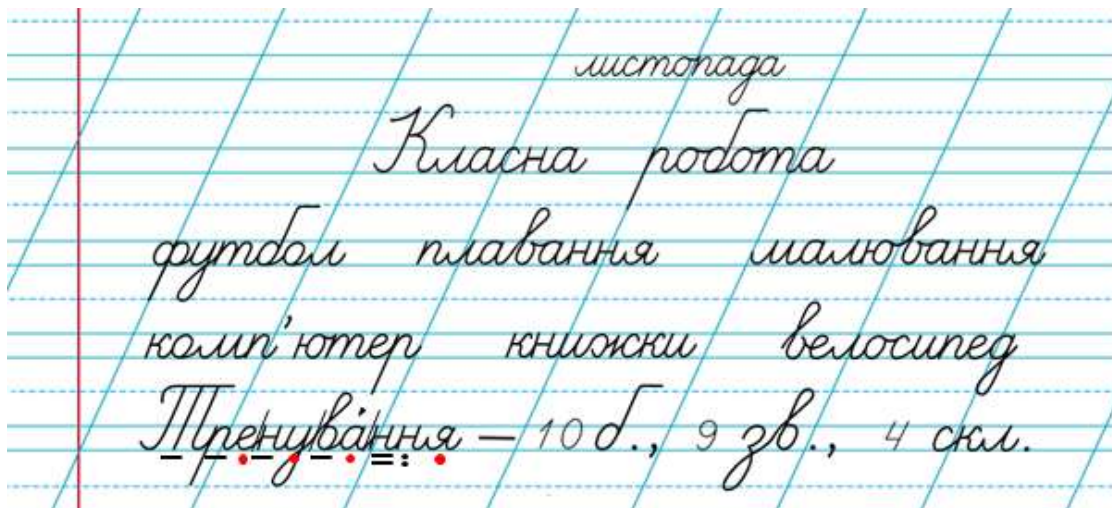 листопада
Класна робота
футбол плавання малювання
комп'ютер книжки велосипед
Тре/ну/ва́/ння — 10 б., 9 зв., 4 скл.